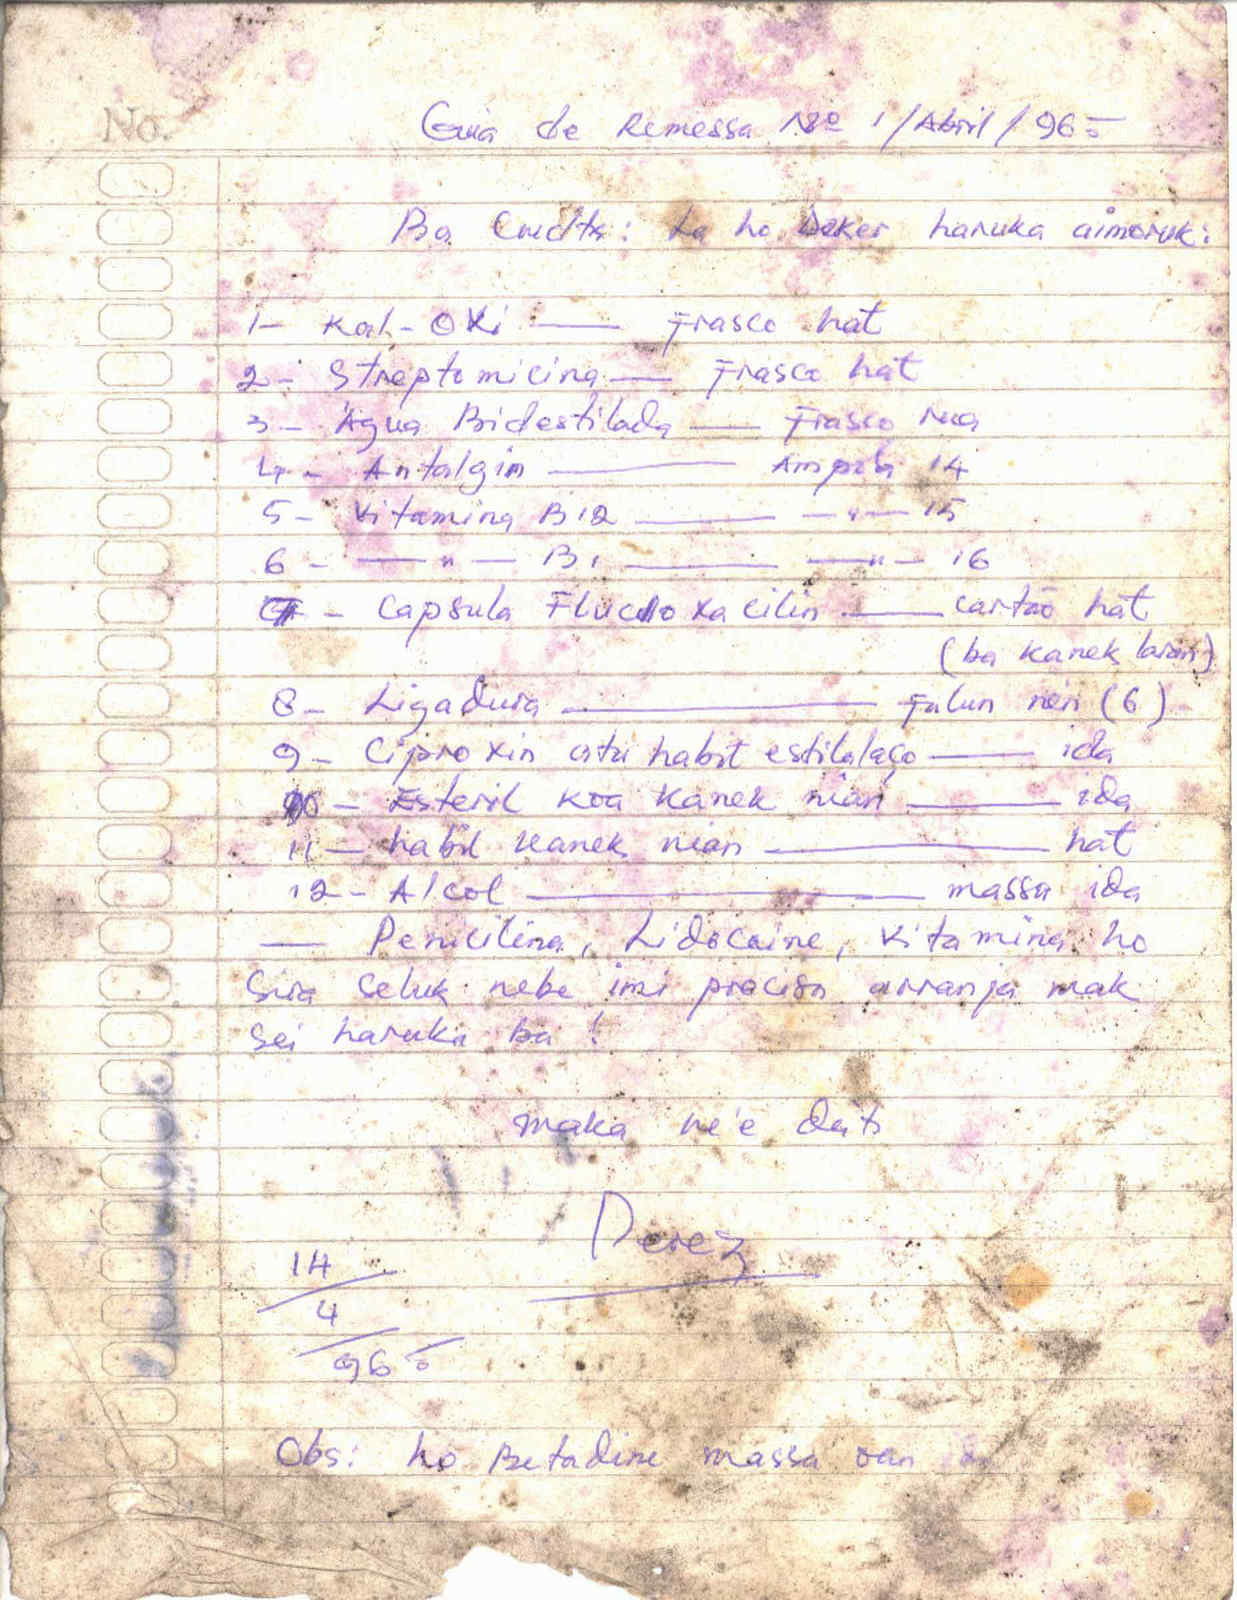 No.
Guia de Remessa Nº 1/Abril/96
Ba : La ho haruka aimoruk:
1- Kal-Oxi — Frasco hat
2- Streptomicina — Frasco hat
3- Água Bidestilada — Frasco rua
4- Antalgin — Ampola 14
5- Vitamina B12 — " — 15
6- — " — B1 — " — 16
7- Capsula Flucloxacilin — cartão hat
(ba kanek laran)
8- Ligadura — Falun nen (6)
9- Ciproxin atu habit estilalaço — ida
10- Esteril koa kanek nian — ida
11- habit kanek nian — hat
12- Alcol — massa ida
— Penicilina, Lidocaine, Vitamina ho
sira seluk nebe imi precisa arranja mak
sei haruka ba!
maka ne'e deit
Perez
14
4
96
Obs: ho Betadine massa oan